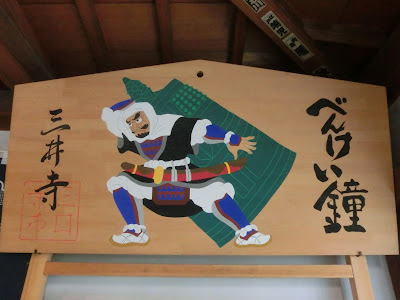 べんけい鐘
三井寺